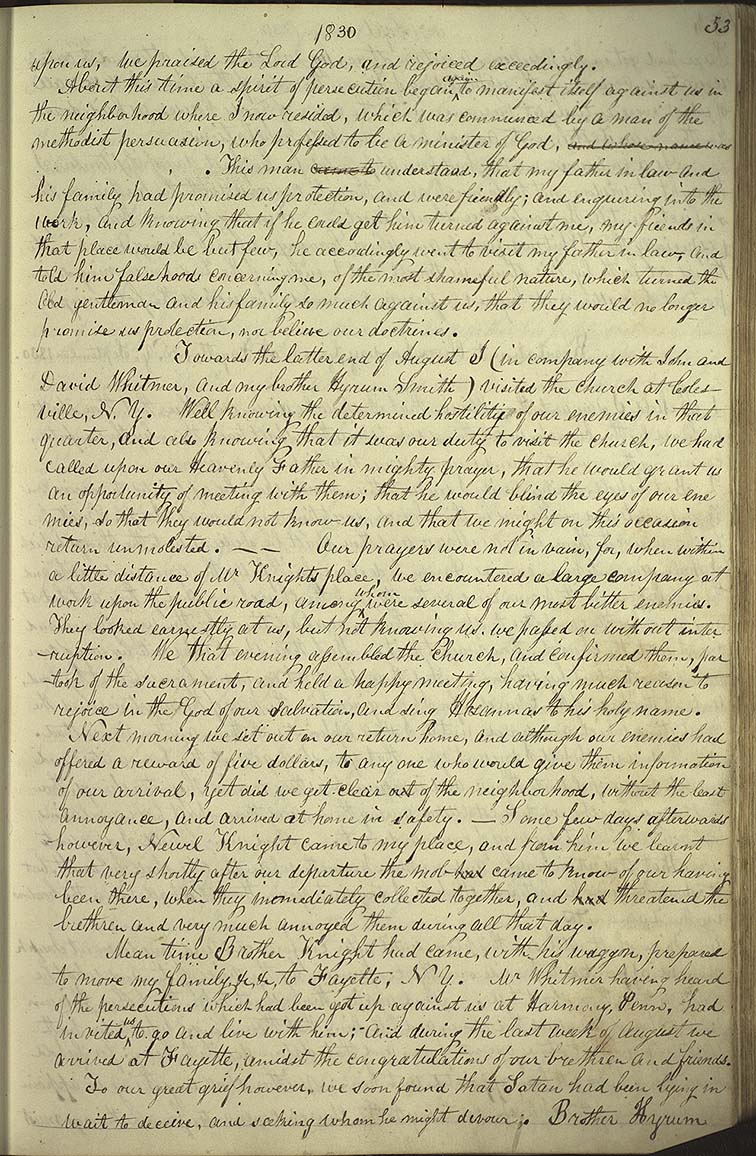 1830
53
upon us, we praised the Lord God, and rejoiced exceedingly.
About this time a spirit of persecution began again to manifest itself against us in
the neighborhood where I now resided, which was commenced by a man of the
methodist persuasion, who professed to be a minister of God, and whose name was
. . . This man came to understand, that my father in law and
his family had promised us protection, and were friendly; and enquiring into the
work, and knowing that if he could get him turned against me, my friends in
that place would be but few, he accordingly went to visit my father in law, and
told him falsehoods concerning me, of the most shameful nature, which turned the
old gentleman and his family so much against us, that they would no longer
promise us protection, nor believe our doctrines.
Towards the latter end of August I (in company with John and
David Whitmer, and my brother Hyrum Smith) visited the church at Coles-
ville, N. Y. Well knowing the determined hostility of our enemies in that
quarter, and also knowing that it was our duty to visit the church, we had
called upon our Heavenly Father in mighty prayer, that he would grant us
an opportunity of meeting with them; that he would blind the eyes of our ene
mies, so that they would not know us, and that we might on this occasion
return unmolested. — — Our prayers were not in vain, for, when within
a little distance of Mr Knights place, we encountered a large company at
work upon the public road, among whom were several of our most bitter enemies.
They looked earnestly at us, but not knowing us. we passed on without inter
-ruption. We that evening assembled the Church, and confirmed them, par
-took of the sacrament, and held a happy meeting, having much reason to
rejoice in the God of our salvation, and sing Hosannas to his holy name.
Next morning we set out on our return home, and although our enemies had
offered a reward of five dollars, to any one who would give them information
of our arrival, yet did we get clear out of the neighborhood, without the least
annoyance, and arrived at home in safety. — Some few days afterwards
however, Newel Knight came to my place, and from him we learnt
that very shortly after our departure the mob had came to know of our having
been there, when they immediately collected together, and had threatened the
brethren and very much annoyed them during all that day.
Mean time Brother Knight had came, with his waggon, prepared
to move my family, &c, &c, to Fayette, N Y. Mr Whitmer having heard
of the persecutions which had been got up against us at Harmony, Penn, had
invited us to go and live with him; and during the last week of August we
arrived at Fayette, amidst the congratulations of our brethren and friends.
To our great grief however, we soon found that Satan had been lying in
wait to deceive, and seeking whom he might devour. Brother Hyrum